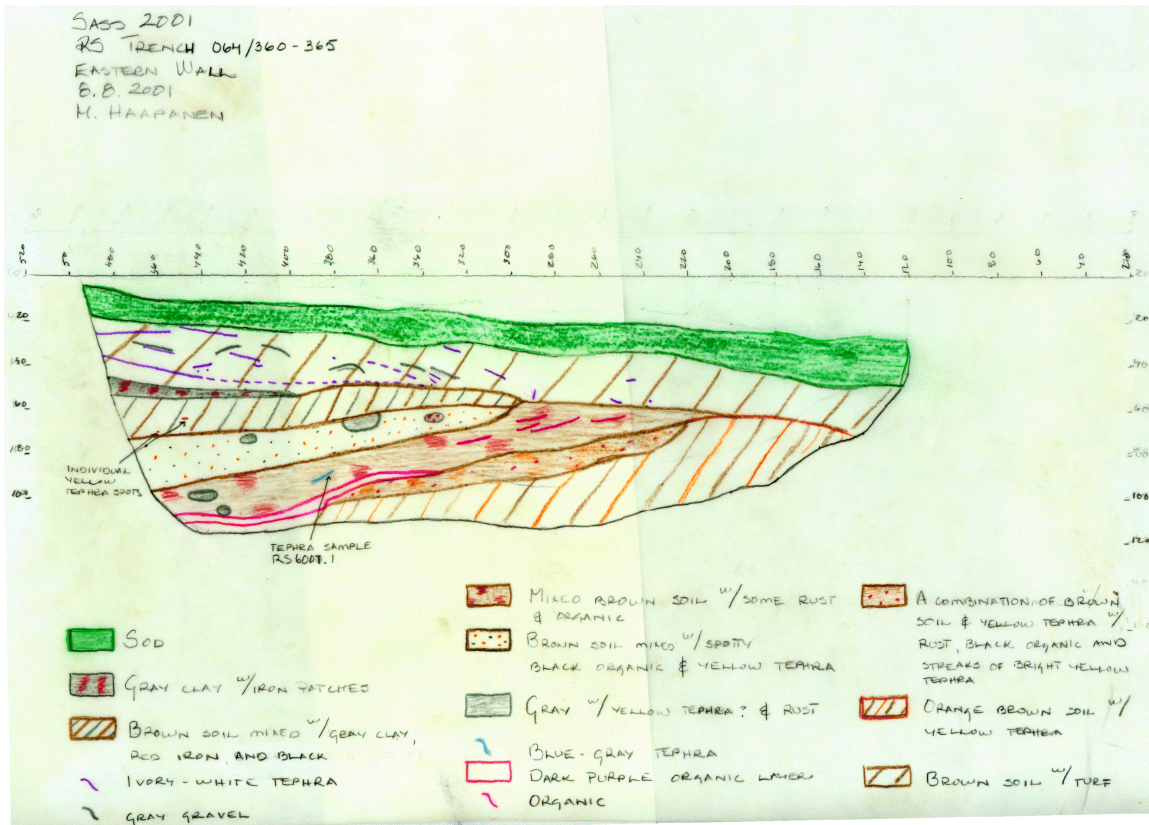 SASS 2001
RS TRENCH 064/360-365
EASTERN WALL
8.8.2001
M. HAAPANEN
520 50 480 460 440 420 400 380 360 340 320 300 280 260 240 220 200 180 160 140 120 100 80 60 40 220
20 20
40 40
60 60
80 80
100 100
120
INDIVIDUAL
YELLOW
TEPHRA SPOTS
TEPHRA SAMPLE
RS6007.1
SOD
GRAY CLAY W/IRON PATCHES
BROWN SOIL MIXED W/GRAY CLAY,
RED IRON, AND BLACK
IVORY-WHITE TEPHRA
GRAY GRAVEL
MIXED BROWN SOIL W/SOME RUST
& ORGANIC
BROWN SOIL MIXED W/SPOTTY
BLACK ORGANIC & YELLOW TEPHRA
GRAY W/YELLOW TEPHRA? & RUST
BLUE-GRAY TEPHRA
DARK PURPLE ORGANIC LAYER
ORGANIC
A COMBINATION OF BROWN
SOIL & YELLOW TEPHRA W/
RUST, BLACK ORGANIC AND
STREAKS OF BRIGHT YELLOW
TEPHRA
ORANGE BROWN SOIL W/
YELLOW TEPHRA
BROWN SOIL W/TURF